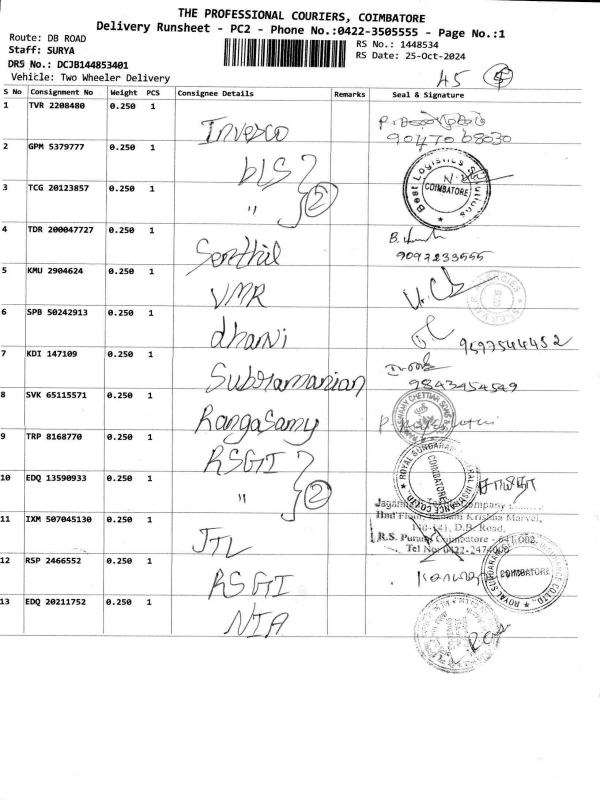 THE PROFESSIONAL COURIERS, COIMBATORE
Delivery Runsheet - PC2 - Phone No.:0422-3505555 - Page No.:1
Route: DB ROAD
RS No.: 1448534
Staff: SURYA
RS Date: 25-Oct-2024
DRS No.: DCJB144853401
Vehicle: Two Wheeler Delivery
45
S No Consignment No Weight PCS Consignee Details Remarks Seal & Signature
1 TVR 2208480 0.250 1 Invesco
9047068030
2 GPM 5379777 0.250 1 bLS
Best Logistics Solutions COIMBATORE
3 TCG 20123857 0.250 1 " 2
4 TDR 200047727 0.250 1 Senthil
9097233555
5 KMU 2904624 0.250 1 VMR
6 SPB 50242913 0.250 1 dharni
9597544452
7 KDI 147109 0.250 1 Subramanian
9843454549
8 SVK 65115571 0.250 1 Rangasamy
9 TRP 8168770 0.250 1 RSGI
COIMBATORE
10 EDQ 13590933 0.250 1 " 2
11 IXM 507045130 0.250 1 JTL
Krishna Marvel,
D.B. Road,
R.S. Puram Coimbatore - 641 002.
12 RSP 2466552 0.250 1 RSGI
COIMBATORE
13 EDQ 20211752 0.250 1 NIA